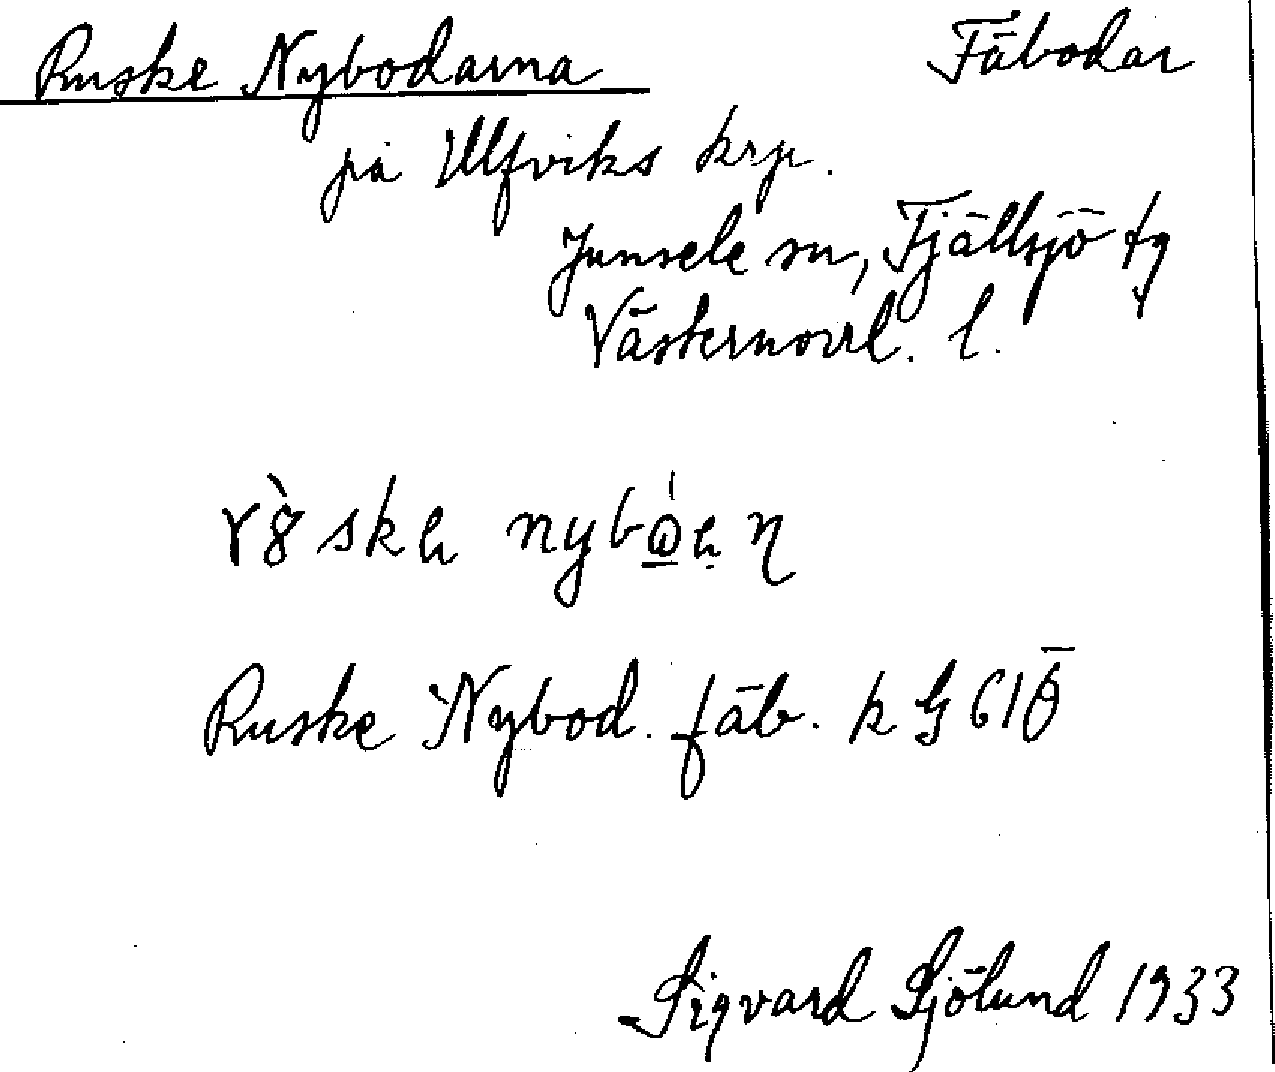 Ruske Nybodarna Fäbodar
på Ulfviks krp.
Junsele sn, Fjällsjö tg
Västernorrl. l.
Ruske Nybod. fäb. k G 61
Sigvard Sjölund 1933